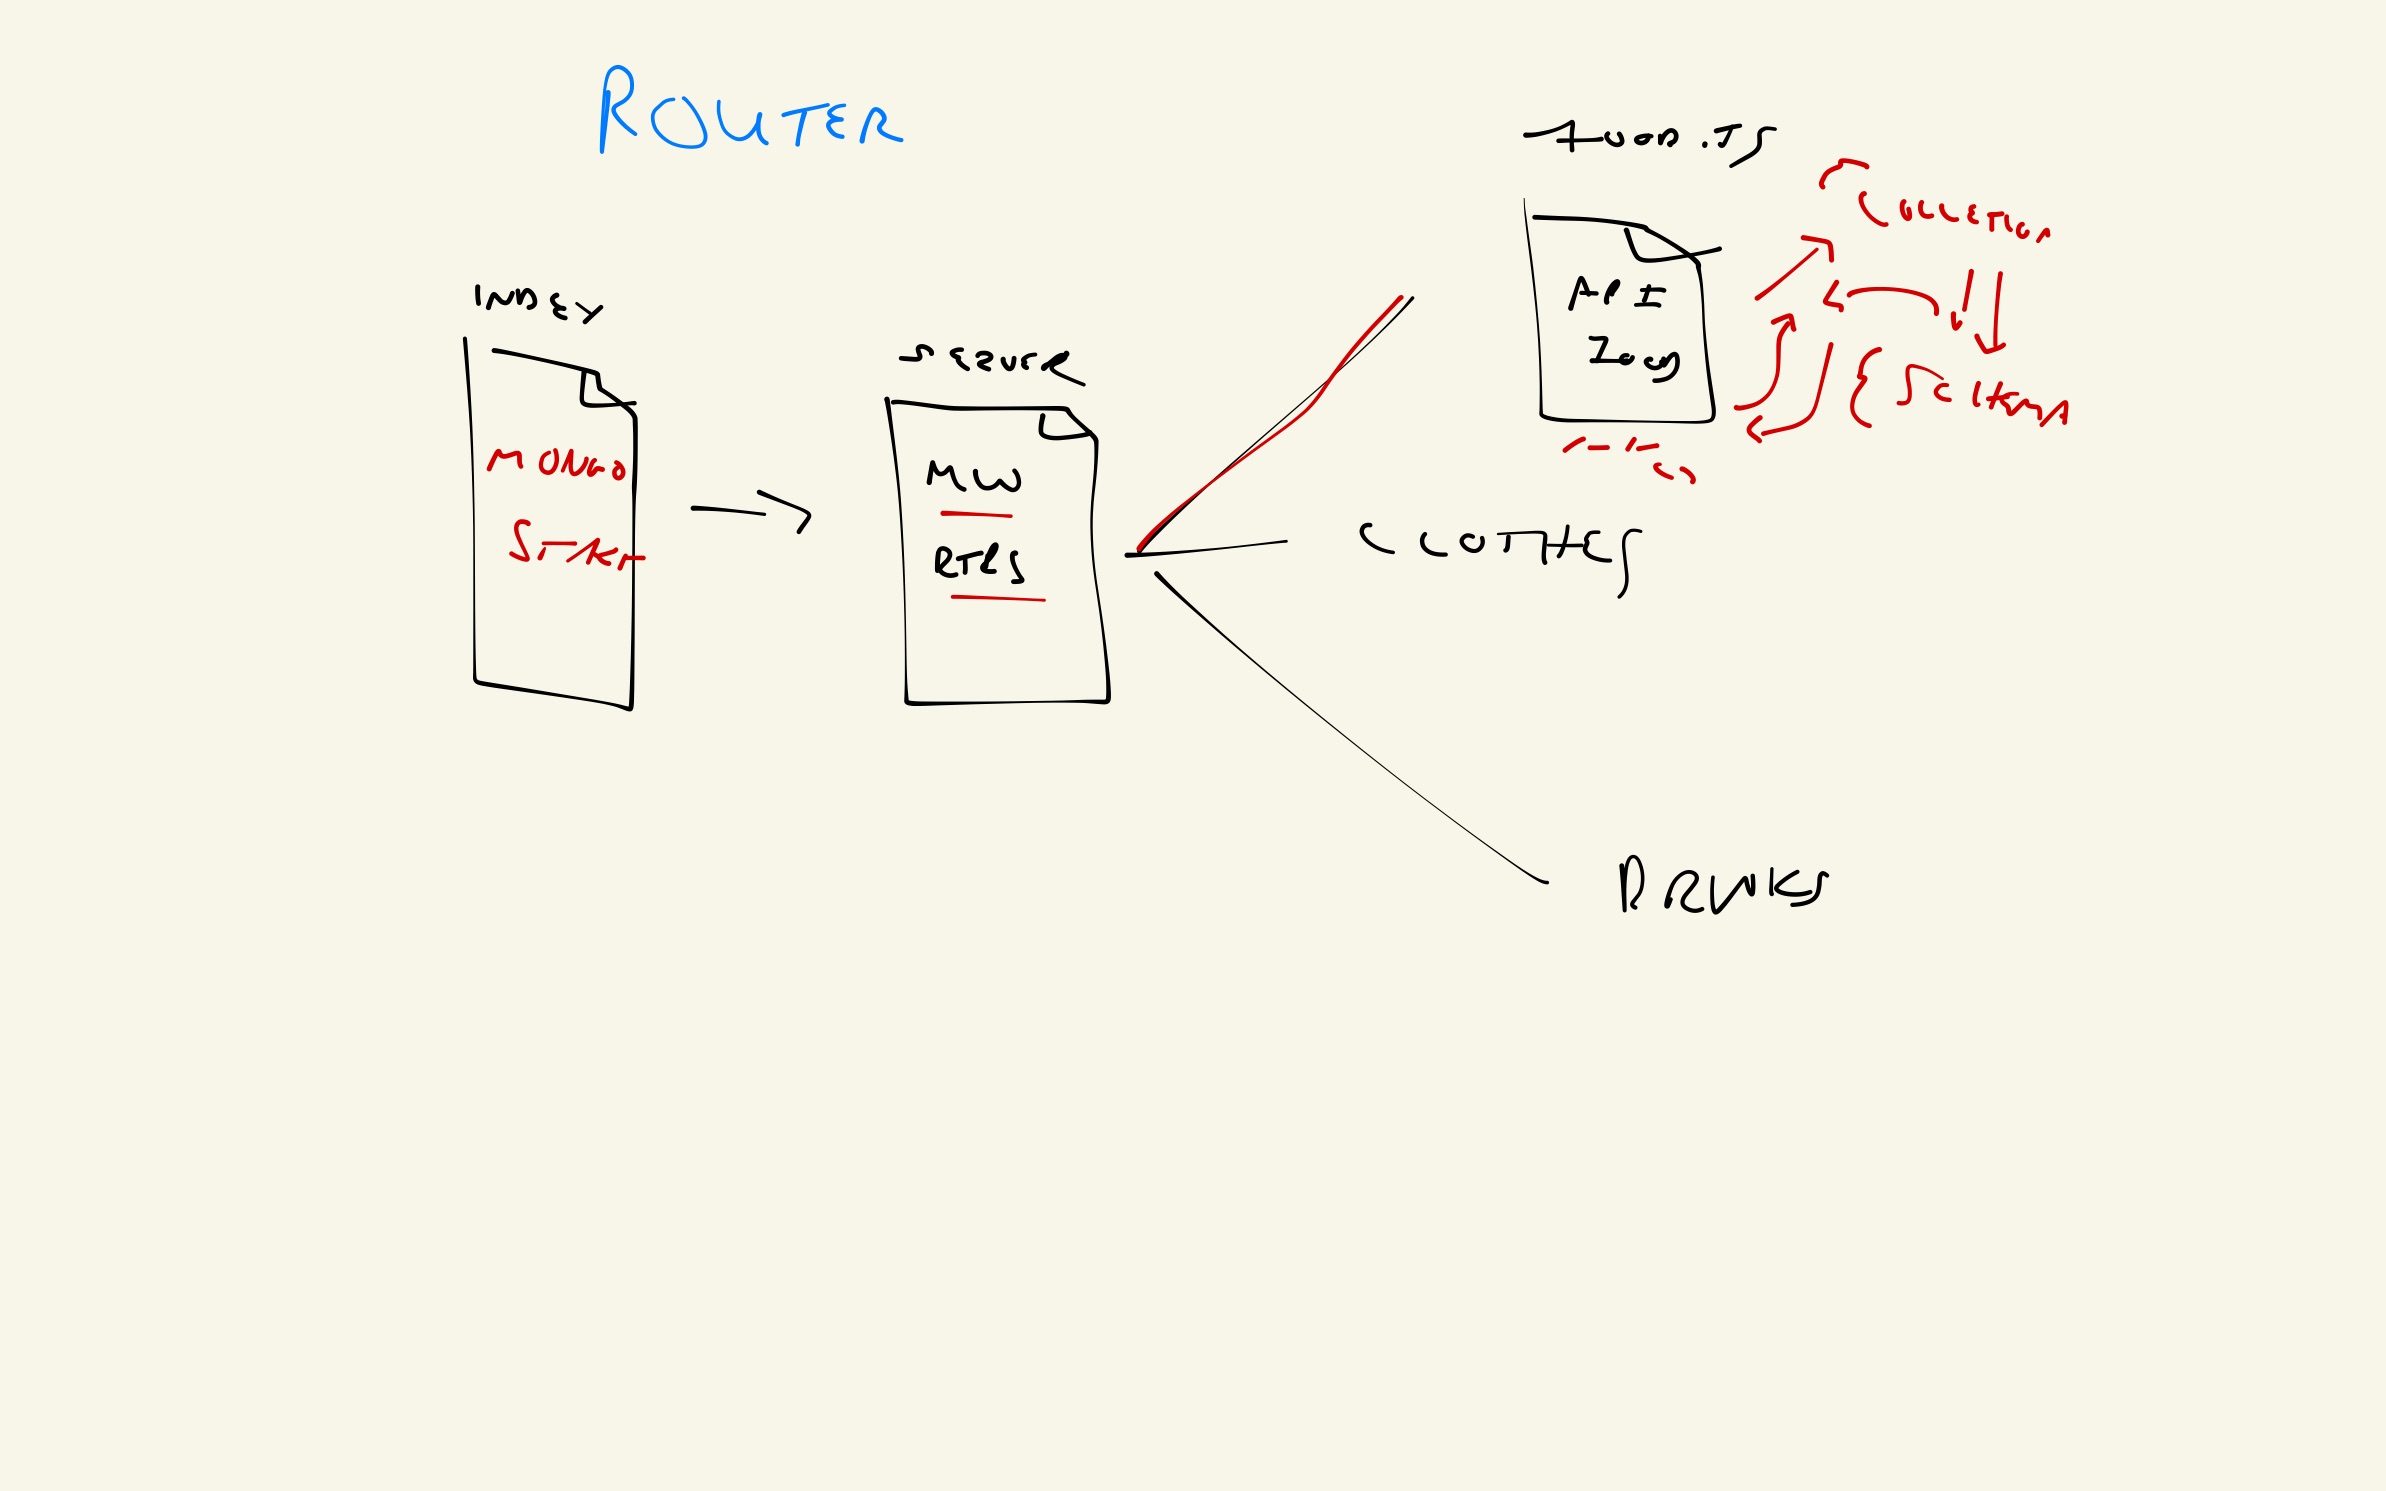 ROUTER
INDEX
MONGO
START
SERVER
MW
RTRS
FOOD.JS
API
COLLECTION
SCHEMA
CLOTHES
DRINKS